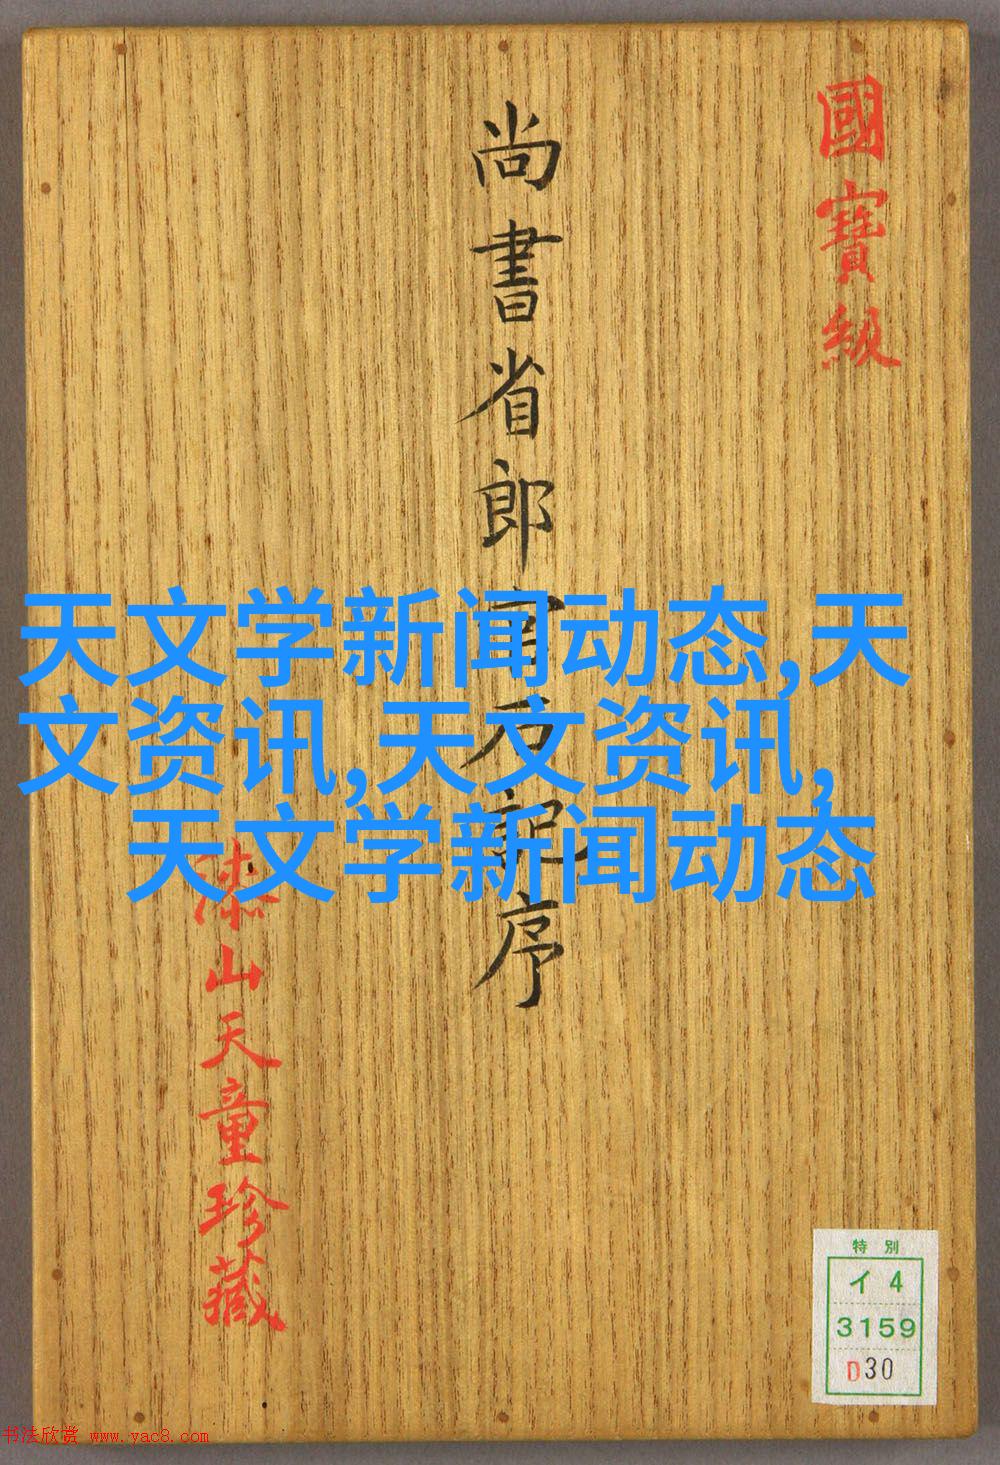 國寶級
尚書省郎官石記序
漆山天童珍藏
天文学新闻动态,天
文资讯,天文资讯,
天文学新闻动态
特別
イ4
3159
D30
书法欣赏 www.yac8.com